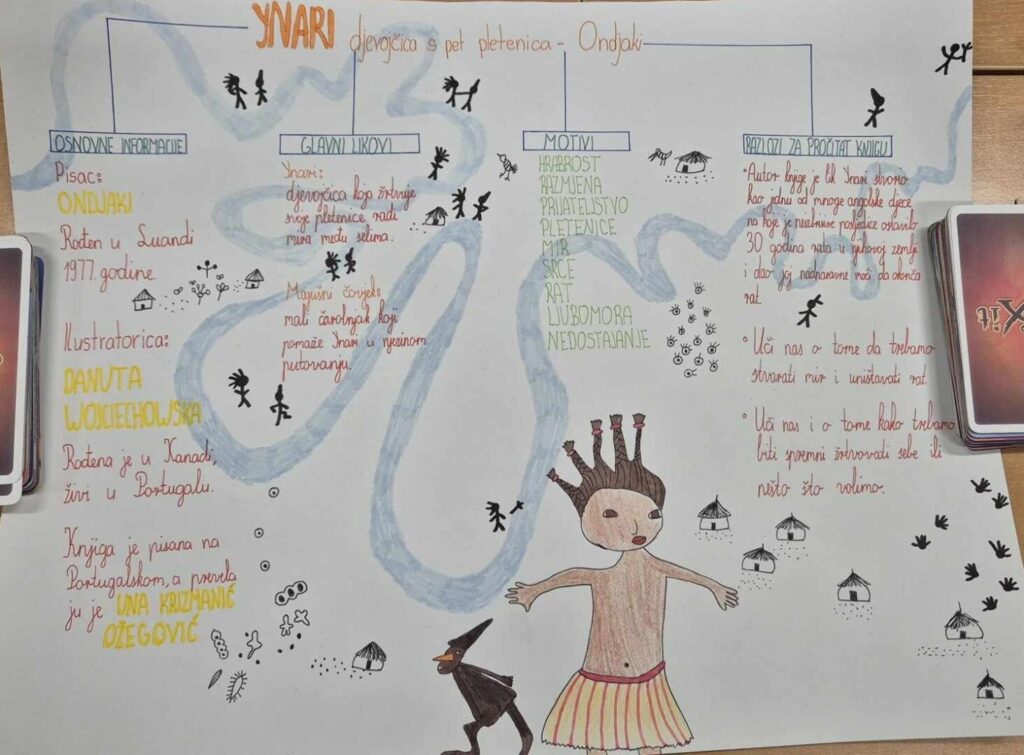 YNARI djevojčica s pet pletenica - Ondjaki
OSNOVNE INFORMACIJE
Pisac:
ONDJAKI
Rođen u Luandi
1977. godine.
Ilustratorica:
DANUTA
WOJCIECHOWSKA
Rođena je u Kanadi,
živi u Portugalu.
Knjiga je pisana na
Portugalskom, a prevela
ju je UNA KRIZMANIĆ
OŽEGOVIĆ
GLAVNI LIKOVI
Ynari:
djevojčica koja žrtvuje
svoje pletenice radi
mira među selima.
Majušni čovjek:
mali čarolnjak koji
pomaže Ynari u njezinom
putovanju.
MOTIVI
HRABROST
RAZMJENA
PRIJATELJSTVO
PLETENICE
MIR
SRCE
RAT
LJUBOMORA
NEDOSTAJANJE
RAZLOZI ZA PROČITAT KNJIGU
• Autor knjige je lik Ynari stvorio
kao jednu od mnoge angolske djece
na koje je neizbrisive posljedice ostavilo
30 godina rata u njihovoj zemlji
i dao joj nadnaravne moći da okonča
rat.
• Uči nas o tome da trebamo
stvarati mir i uništavati rat.
• Uči nas i o tome kako trebamo
biti spremni žrtvovati sebe ili
nešto što volimo.